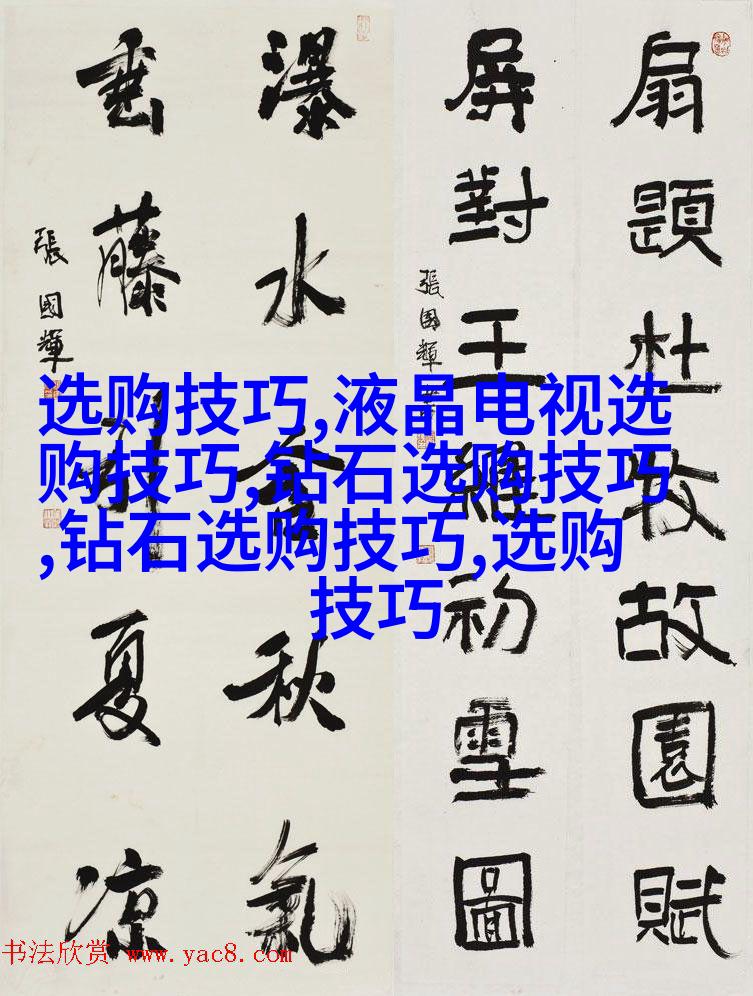 扇題杜牧故園賦
屏對王維初雪圖
張國輝
瀑水含秋氣
垂藤夏凉
張國輝
选购技巧,液晶电视选
购技巧,钻石选购技巧
,钻石选购技巧,选购
技巧
书法欣赏 www.yac8.com